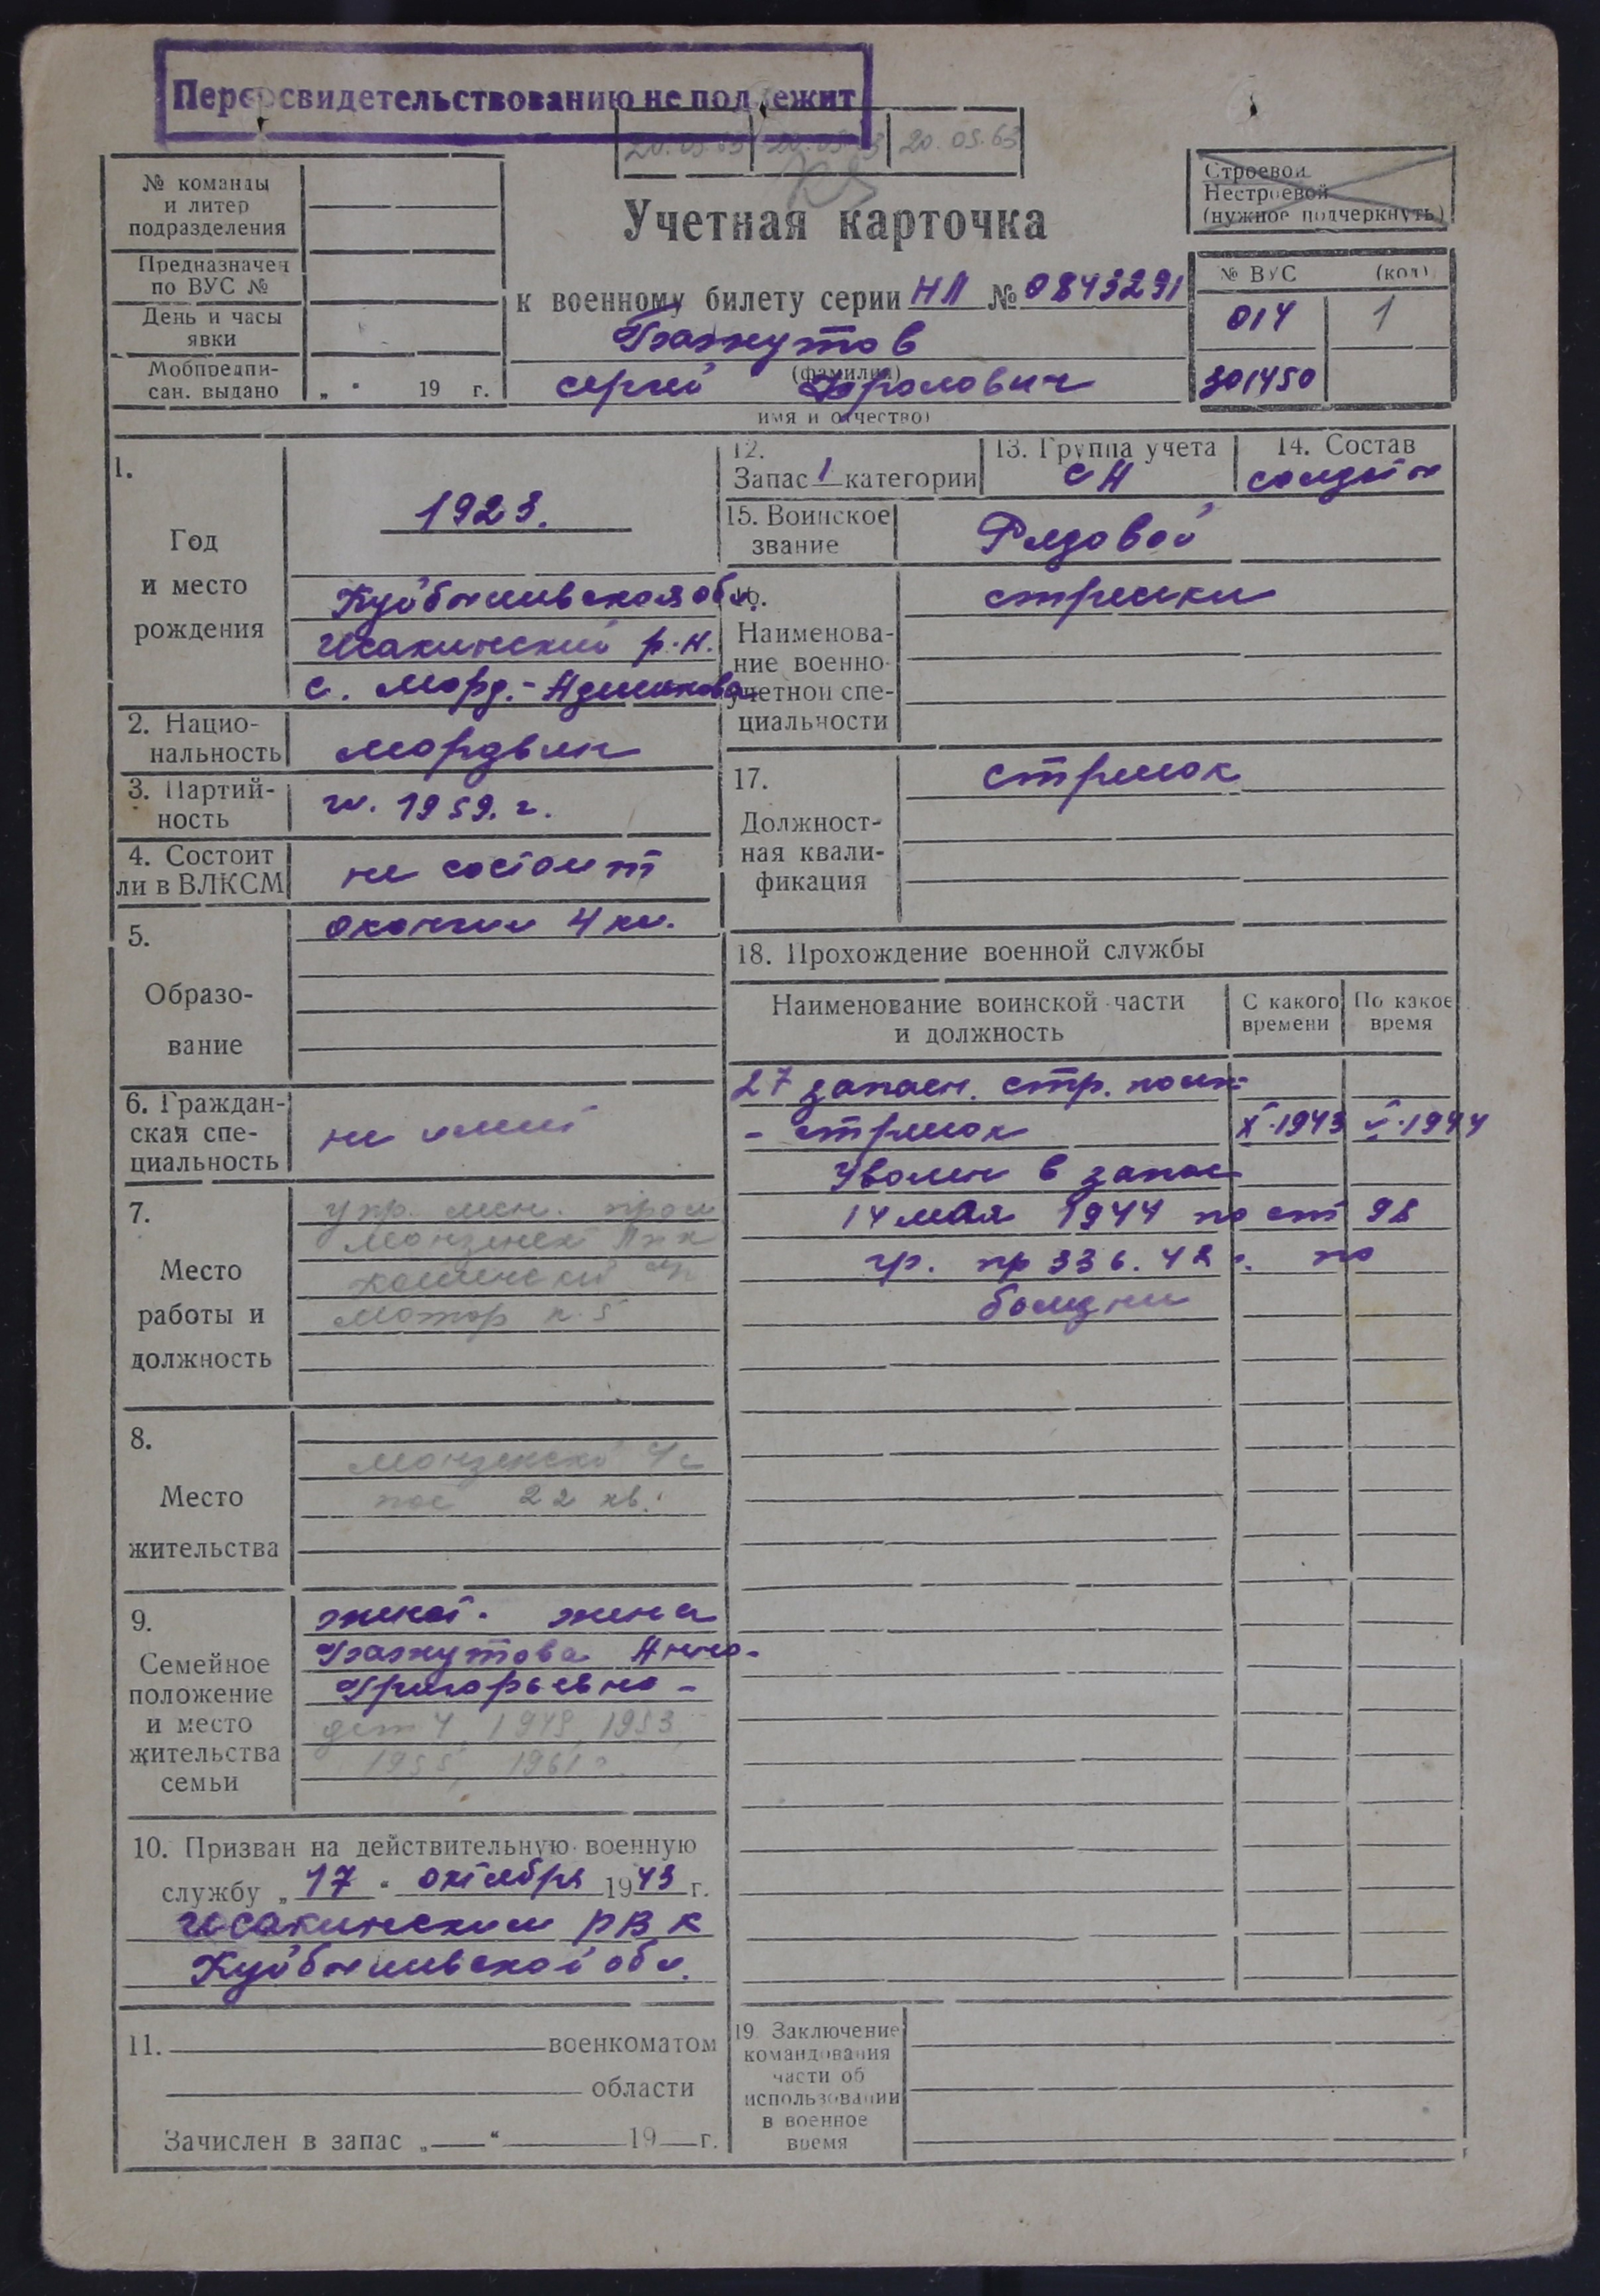 Пересвидетельствованию не подлежит
20.05.63 20.05.63 20.05.63
№ команды
и литер
подразделения
Предназначен
по ВУС №
День и часы
явки
Мобпредпи-
сан. выдано „ " 19 г.
Учетная карточка
к военному билету серии НЛ № 0843291
Бажутов
(фамилия)
Сергей Фролович
имя и отчество)
Строевой
Нестроевой
(нужное подчеркнуть)
№ ВУС (код)
014 1
301450
1.
Год
и место
рождения
1923.
Куйбышевская обл.
Исаклинский р-н.
с. Морд.-
2. Нацио-
нальность
мордвин
3. Партий-
ность
1959. г.
4. Состоит
ли в ВЛКСМ
не состоит
5.
Образо-
вание
окончил 4 кл.
6. Граждан-
ская спе-
циальность
не имеет
7.
Место
работы и
должность
упр.
8.
Место
жительства
Монзенский
пос 22 кв.
9.
Семейное
положение
и место
жительства
семьи
женат. жена
Бажутова Анна-
Григорьевна -
дет 4, 1949, 1953,
1955, 1961 г.
10. Призван на действительную военную
службу „17" октября 1943 г.
Исаклинским РВК
Куйбышевской обл.
11. военкоматом
области
Зачислен в запас „ “ 19 г.
12.
Запас 1 категории
13. Группа учета
СА
14. Состав
солдат
15. Воинское
звание
Рядовой
16.
Наименова-
ние военно-
учетной спе-
циальности
стрелки
17.
Должност-
ная квали-
фикация
стрелок
18. Прохождение военной службы
Наименование воинской части
и должность
С какого
времени
По какое
время
27 запасн. стр. полк-
- стрелок X.1943 V.1944
Уволен в запас
14 мая 1944 по ст 98
гр. пр 336. 42 г. по
болезни
19. Заключение
командования
части об
использовании
в военное
время